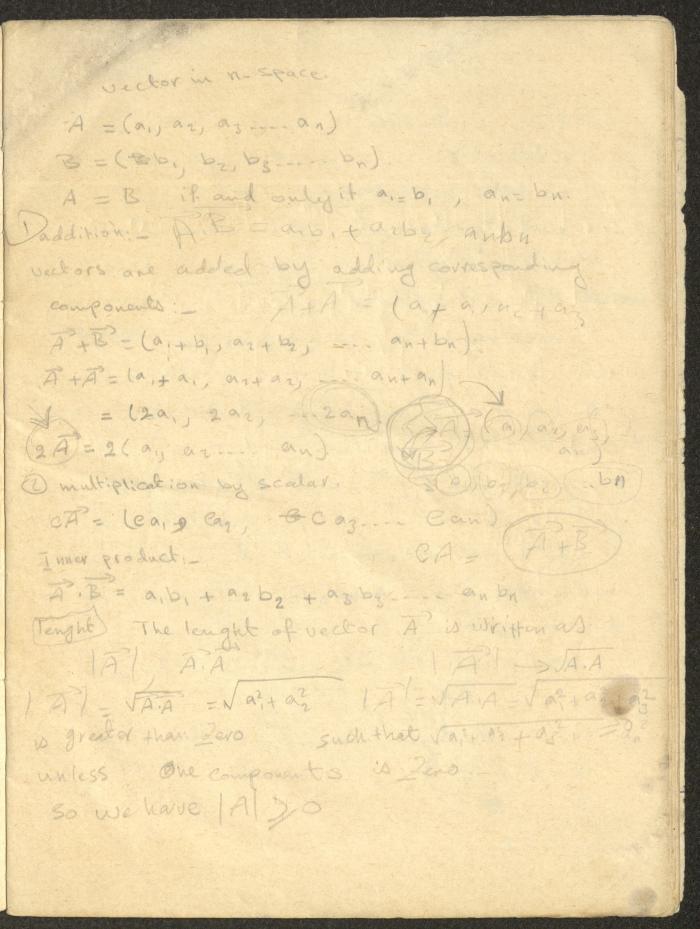 vector in n-space.
A = (a₁, a₂, a₃ .... aₙ)
B = (b₁, b₂, b₃ ..... bₙ).
A = B if and only if a₁=b₁, aₙ=bₙ.
1) addition:- A⃗.B⃗ = a₁b₁ + a₂b₂, aₙbₙ
vectors are added by adding corresponding
components:- A⃗+A⃗ = (a + a₁, a₂ + a₃
A⃗+B⃗ = (a₁+b₁, a₂+b₂, .... aₙ+bₙ).
A⃗+A⃗ = (a₁+a₁, a₂+a₂, .... aₙ+aₙ)
= (2a₁, 2a₂, ...2aₙ) A = (a₁, a₂, a₃
2A⃗ = 2(a₁, a₂ .... aₙ) B⃗ aₙ)
② multiplication by scalar. b₁, b₂, ...bₙ
cA⃗ = (ca₁, ca₂, ca₃ .... caₙ)
Inner product:- CA = A⃗+B⃗
A⃗.B⃗ = a₁b₁ + a₂b₂ + a₃b₃ ..... aₙbₙ
lenght The lenght of vector A⃗ is written as
|A⃗|, A⃗.A⃗ |A⃗| → √A.A
|A⃗| = √A⃗.A⃗ = √a₁²+a₂² |A⃗| = √A.A = √a₁²+a₂²+a₃²
is greater than Zero such that √a₁²+a₂²+a₃²
unless One components is Zero
so we have |A| ⩾ 0